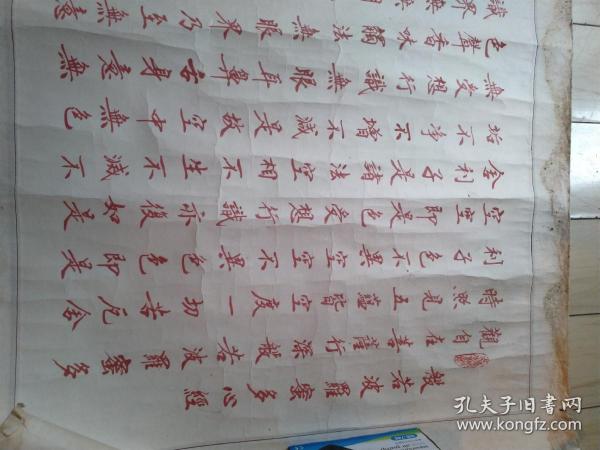 般若波羅蜜多心經
觀自在菩薩行深般若波羅蜜多
時照見五蘊皆空度一切苦厄舍
利子色不異空空不異色色即是
空空即是色受想行識亦復如是
舍利子是諸法空相不生不滅不
垢不淨不增不減是故空中無色
無受想行識無眼耳鼻舌身意無
色聲香味觸法無眼界乃至無意
識界無
孔夫子旧书网
www.kongfz.com